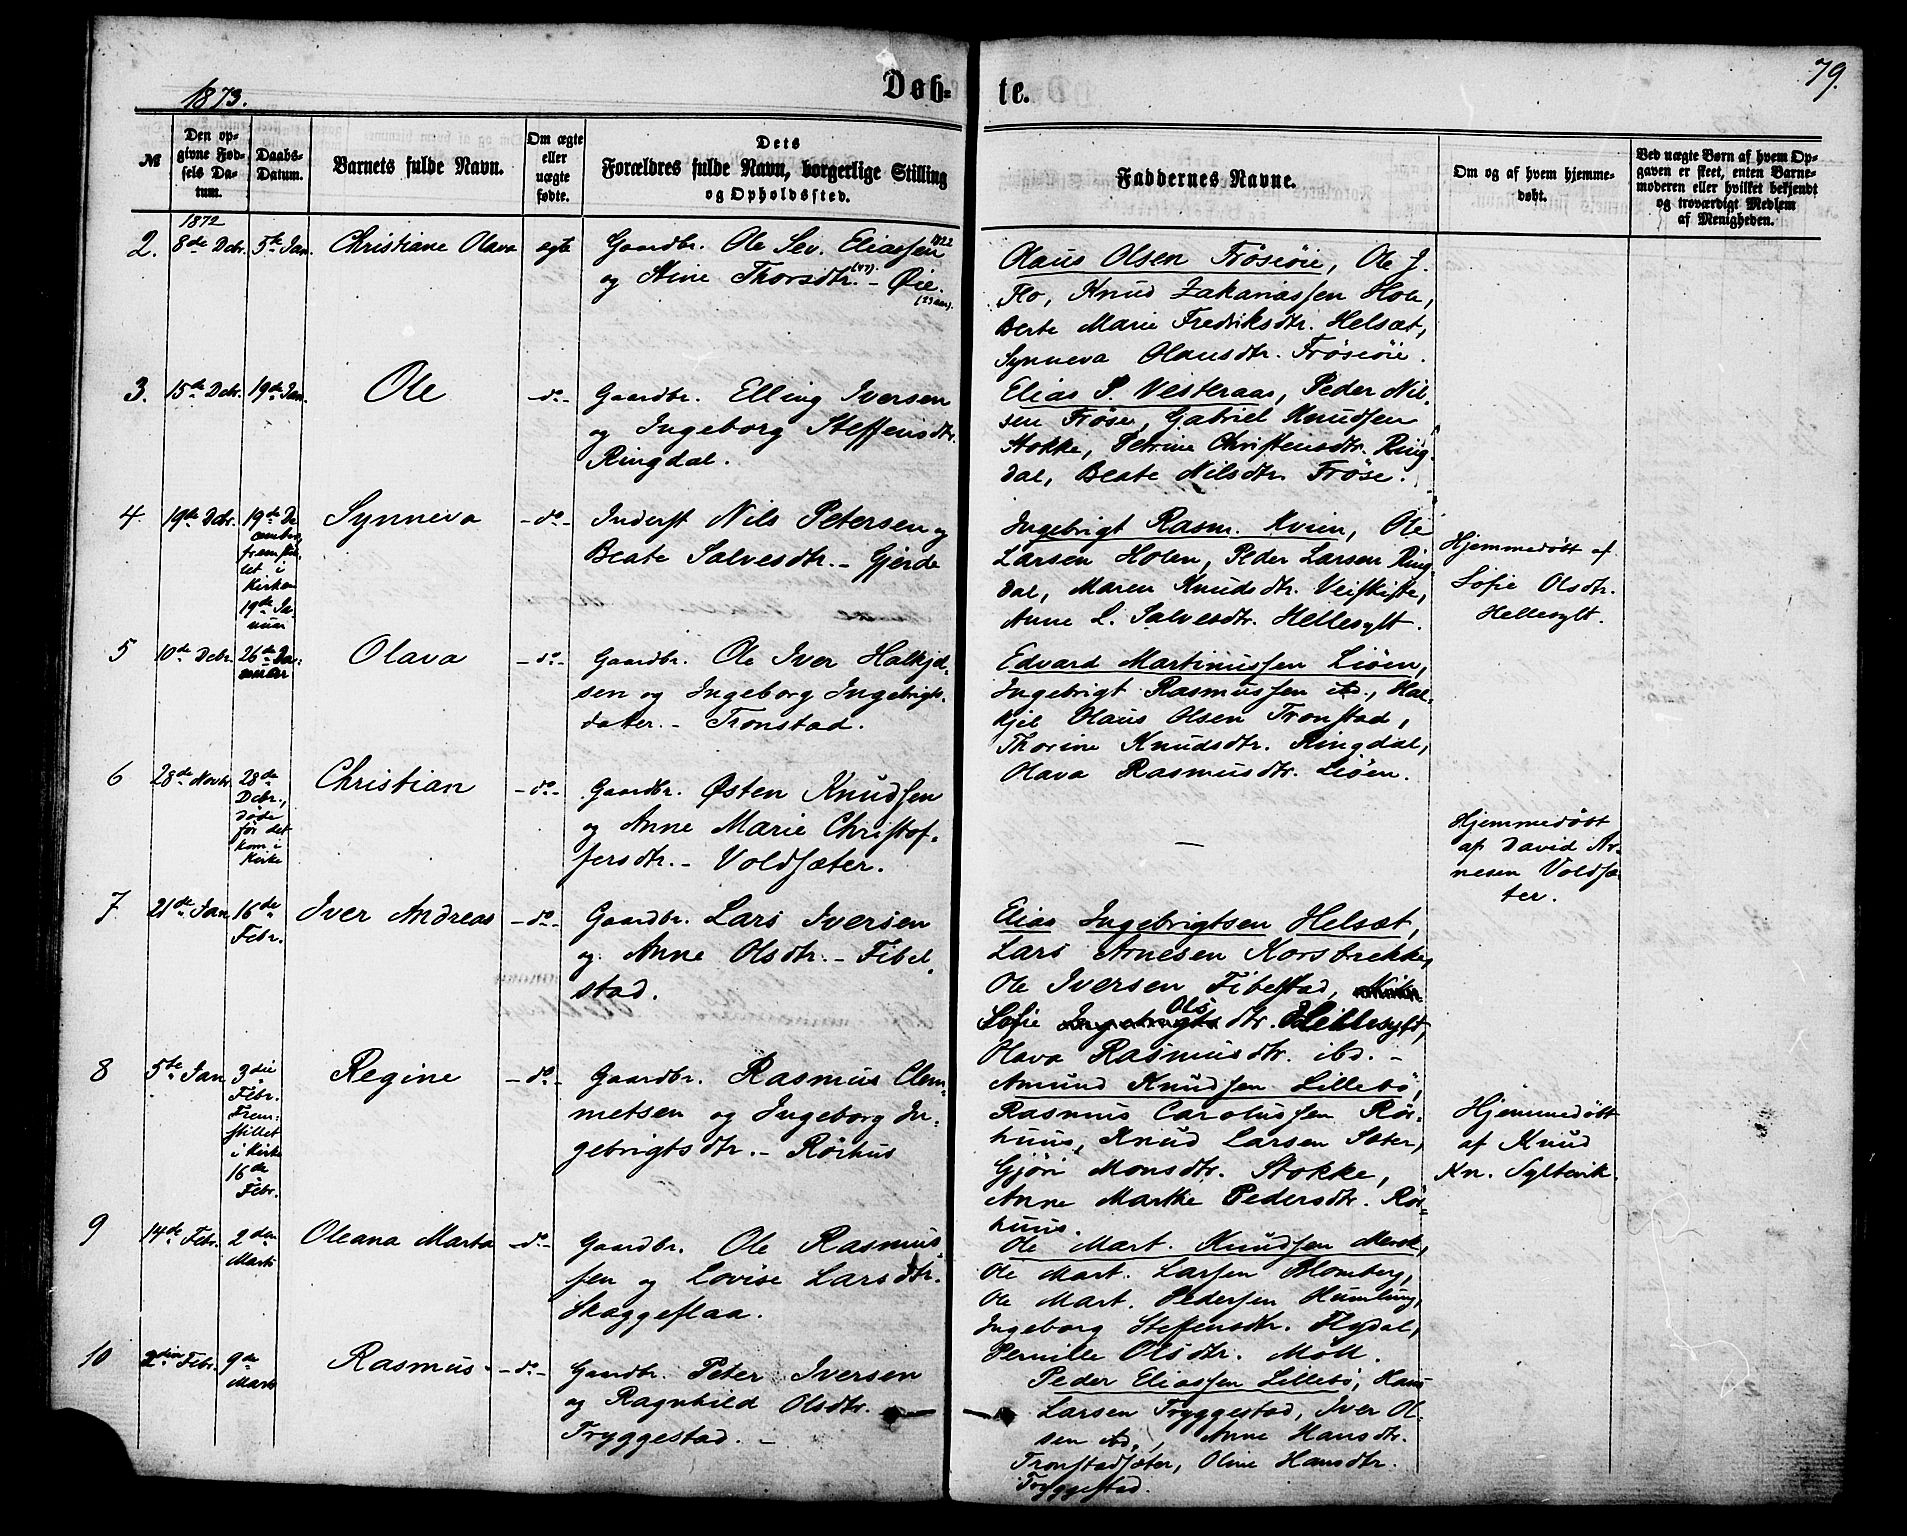 1873.
Døb-
te.
79.
№
Den op-
givne Fød-
sels Da-
tum.
Daabs-
Datum.
Barnets fulde Navn.
Om ægte
eller
uægte
fødte.
Dets
Forældres fulde Navn, borgerlige Stilling
og Opholdssted.
Faddernes Navne.
Om og af hvem hjemme-
døbt.
Ved uægte Børn af hvem Op-
gaven er skeet, enten Barne-
moderen eller hvilket bekjendt
og troværdigt Medlem
af Menigheden.
1872
2. 8de Dcbr. 5te Jan. Christiane Olava ægte
Gaardbr. Ole Sev. Eliassen
og Stine Thorsdtr. - Øie.
Olaus Olsen Frøsøie, Ole J.
Flo, Knud Zakariassen Hole,
Berte Marie Fredriksdtr. Helsæt,
Synneva Olausdtr. Frøsøie.
3. 15de Dcbr. 19de Jan. Ole -do-
Gaardbr. Elling Iversen
og Ingeborg Steffensdtr.
Ringdal.
Elias P. Vesteraas, Peder Nil-
sen Frøse, Gabriel Knudsen
Stokke, Petrine Christensdtr. Ring-
dal, Beate Nilsdtr. Frøse.
4 19de Dcbr. 19de De
cember,
fremstil-
let i
Kirken
19de Ja-
nuar
Synneva -do-
Inderst Nils Petersen og
Beate Salvesdtr. - Gjerde
Ingebrigt Rasm. Kvien, Ole
Larsen Holen, Peder Larsen Ring-
dal, Maren Knudsdtr. Veiskifte,
Anne L. Salvesdtr. Hellesylt.
Hjemmedøbt af
Sofie Olsdtr.
Hellesylt.
5 10de Dcbr. 26de Ja-
nuar
Olava -do-
Gaardbr. Ole Iver Halkjel-
sen og Ingeborg Ingebrigts-
datter. - Tronstad.
Edvard Martinussen Liøen,
Ingebrigt Rasmussen ibd., Hal-
kjel Olaus Olsen Tronstad,
Thorine Knudsdtr. Ringdal,
Olava Rasmusdtr. Liøen.
6 28de Novbr. 28de
Dcbr.,
døde
før det
kom i
Kirke
Christian -do-
Gaardbr. Østen Knudsen
og Anne Marie Christof-
fersdtr. - Voldsæter.
-
Hjemmedøbt
af David Ar-
nesen Voldsæ-
ter.
7 21de Jan 16de
Febr.
Iver Andreas -do-
Gaardbr. Lars Iversen
og Anne Olsdtr. - Fibel-
stad.
Elias Ingebrigtsen Helsæt,
Lars Arnesen Korsbrekke,
Ole Iversen Fibelstad,
Sofie Ols dtr. Hellesylt,
Olava Rasmusdtr. ibd. -
8 5te Jan 3die
Febr.
Frem-
stillet
i Kirke
16de
Febr.
Regine -do-
Gaardbr. Rasmus Clem-
metsen og Ingeborg In-
gebrigtsdtr. - Rørhus
Amund Knudsen Lillebø,
Rasmus Carolussen Rør-
huus, Knud Larsen Sæter,
Gjøri Monsdtr. Stokke,
Anne Marthe Pedersdtr. Rør-
huus.
Hjemmedøbt
af Knud
Kn. Syltevik.
9 14de Febr. 2den
Marts
Oleana Marta -do-
Gaardbr. Ole Rasmus-
sen og Lovise Larsdtr.
Skaggeflaa.
Ole Mart. Knudsen Merok,
Ole Mart. Larsen Blomberg,
Ole Mart. Pedersen Humlung,
Ingeborg Steffensdtr. Flydal,
Pernille Olsdtr. Moll.
10 2den Febr. 9de
Marts
Rasmus -do-
Gaardbr. Peter Iversen
og Ragnhild Olsdtr.
Tryggestad. -
Peder Eliassen Lillebø, Hans
Larsen Tryggestad, Iver Ol-
sen ibd., Anne Hansdtr.
Tronstadsæter, Oline Hansdtr.
Tryggestad.